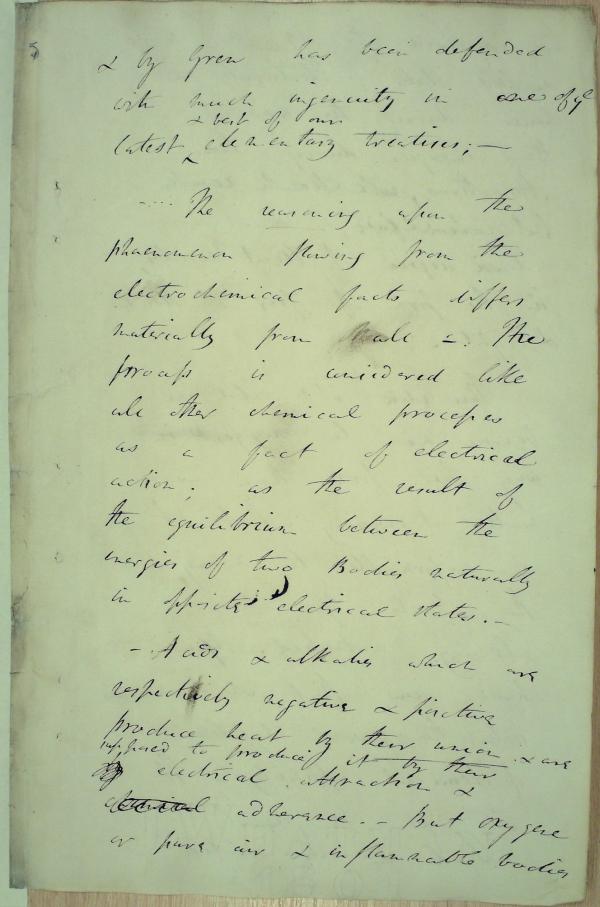 5
& by Gren has been defended
with much ingenuity in one of ye
& best of our
latest ^ elementary treatises; —
The reasoning upon the
phaenomenon flowing from the
electrochemical facts differs
materially from all =. The
process is considered like
all other chemical processes
as a fact of electrical
action; as the result of
the equilibrium between the
energies of two Bodies naturally
in opposite electrical states. –
– Acids & alkalies which are
respectively negative & positive
produce heat by their union & are
supposed to produce it by their
electrical attraction &
adherence. – But oxygene
or pure air & inflammable bodies